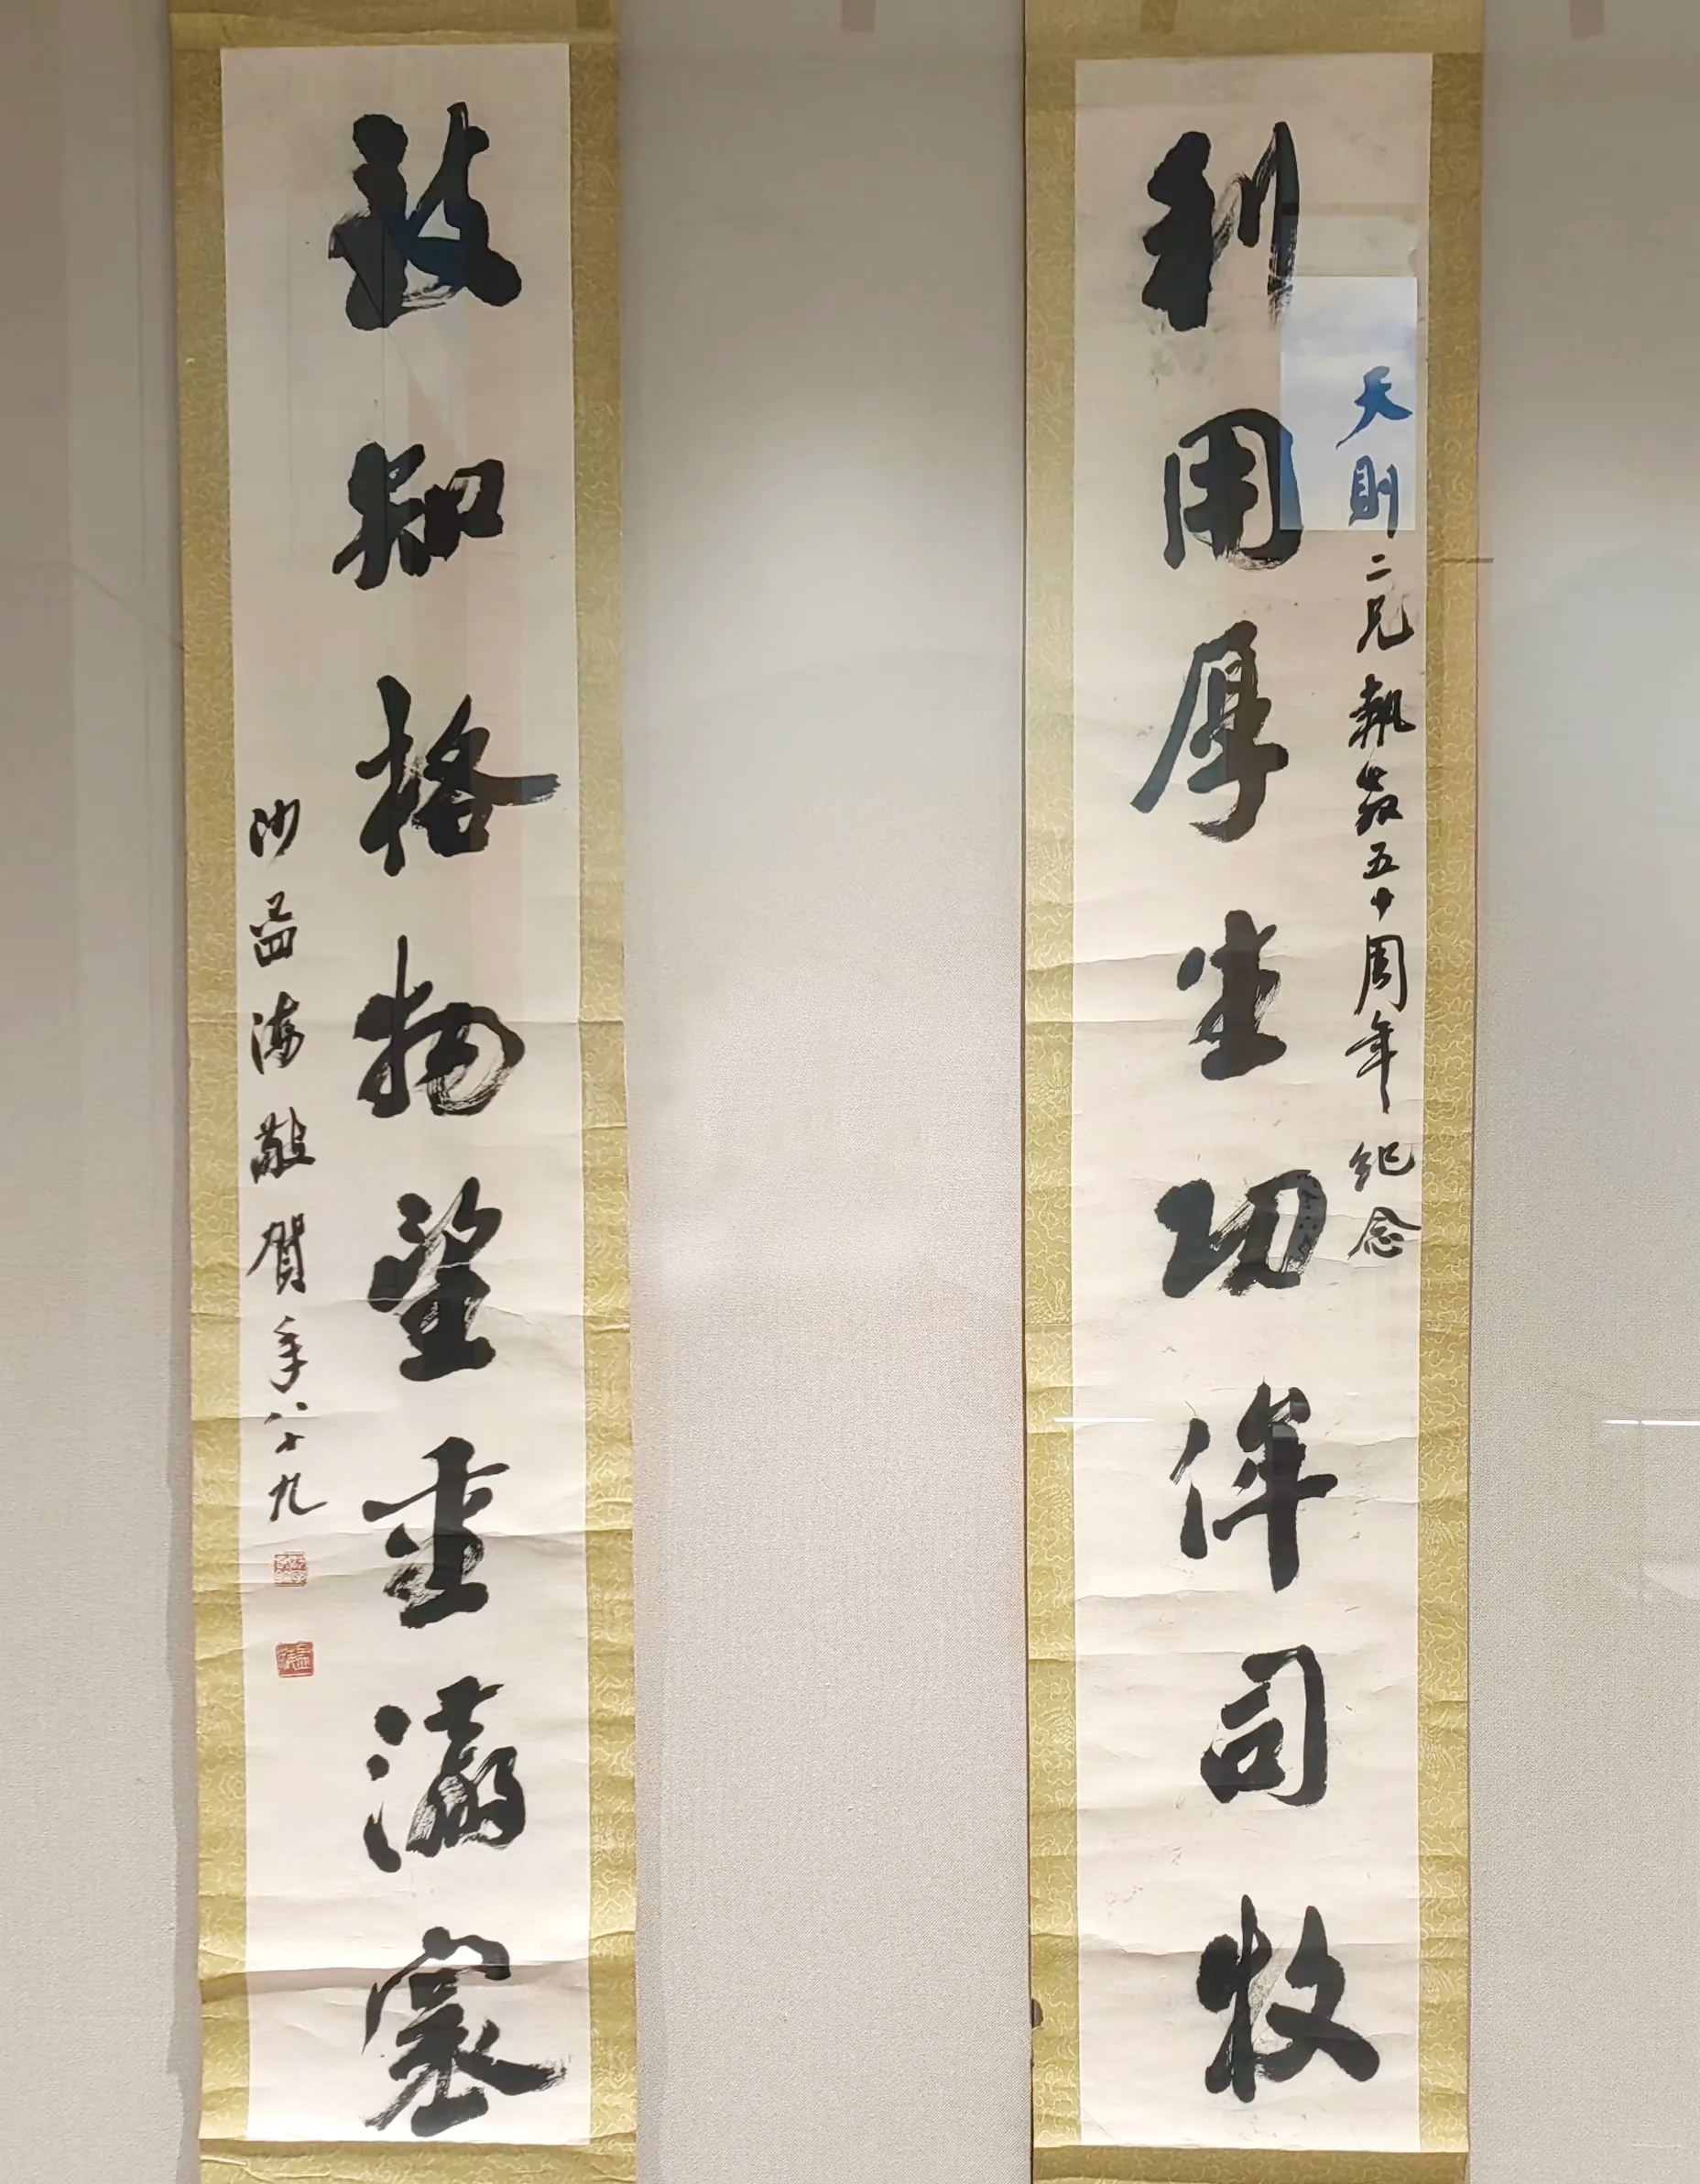 天則二兄執教五十周年紀念
利用厚生功侔司牧
致知格物望重瀛寰
沙孟海敬賀年八十九